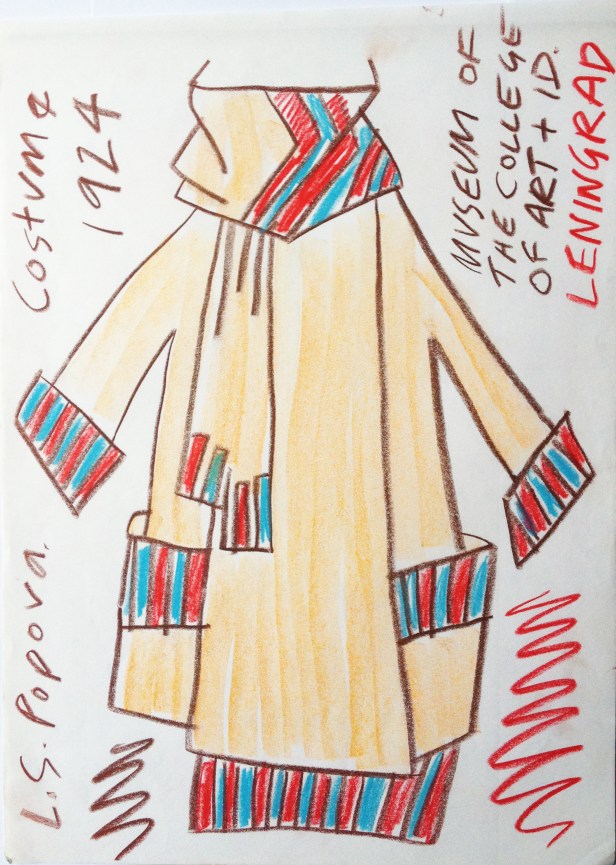 L.S. Popova. Costume
1924
MUSEUM OF
THE COLLEGE
OF ART + ID.
LENINGRAD